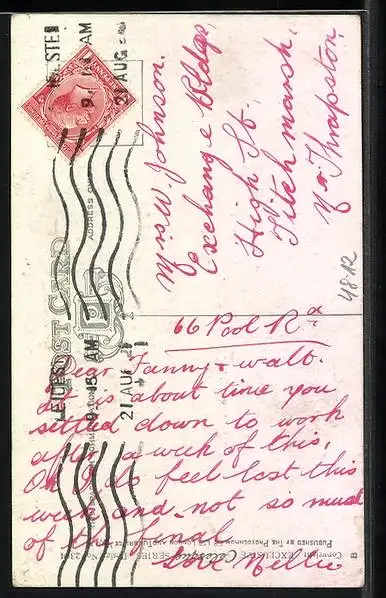 LEICESTER
9. 15 AM
21 AUG
POST CARD
ADDRESS ON
Mrs W. Johnson.
Exchange Bldgs,
High St,
Titchmarsh,
Nr Thrapston.
4812
LEICESTER
9. 15 AM
21 AUG
66 Pool Rd
Dear Fanny & Walt.
It is about time you
settled down to work
after a week of this,
Oh I do feel lost this
week and not so much
of the final
Love Nellie
Copyright "EXCLUSIVE Celesque SERIES" Design No. 2301
PUBLISHED BY THE PHOTOCHROM CO LTD LONDON AND TUNBRIDGE WELLS
B